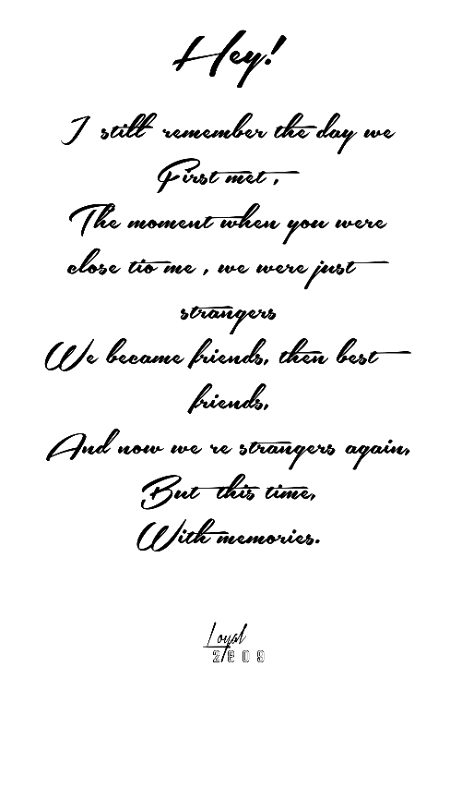 Hey!
I still remember the day we
First met ,
The moment when you were
close tio me , we were just
strangers
We became friends, then best
friends,
And now we re strangers again,
But this time,
With memories.
Loyal